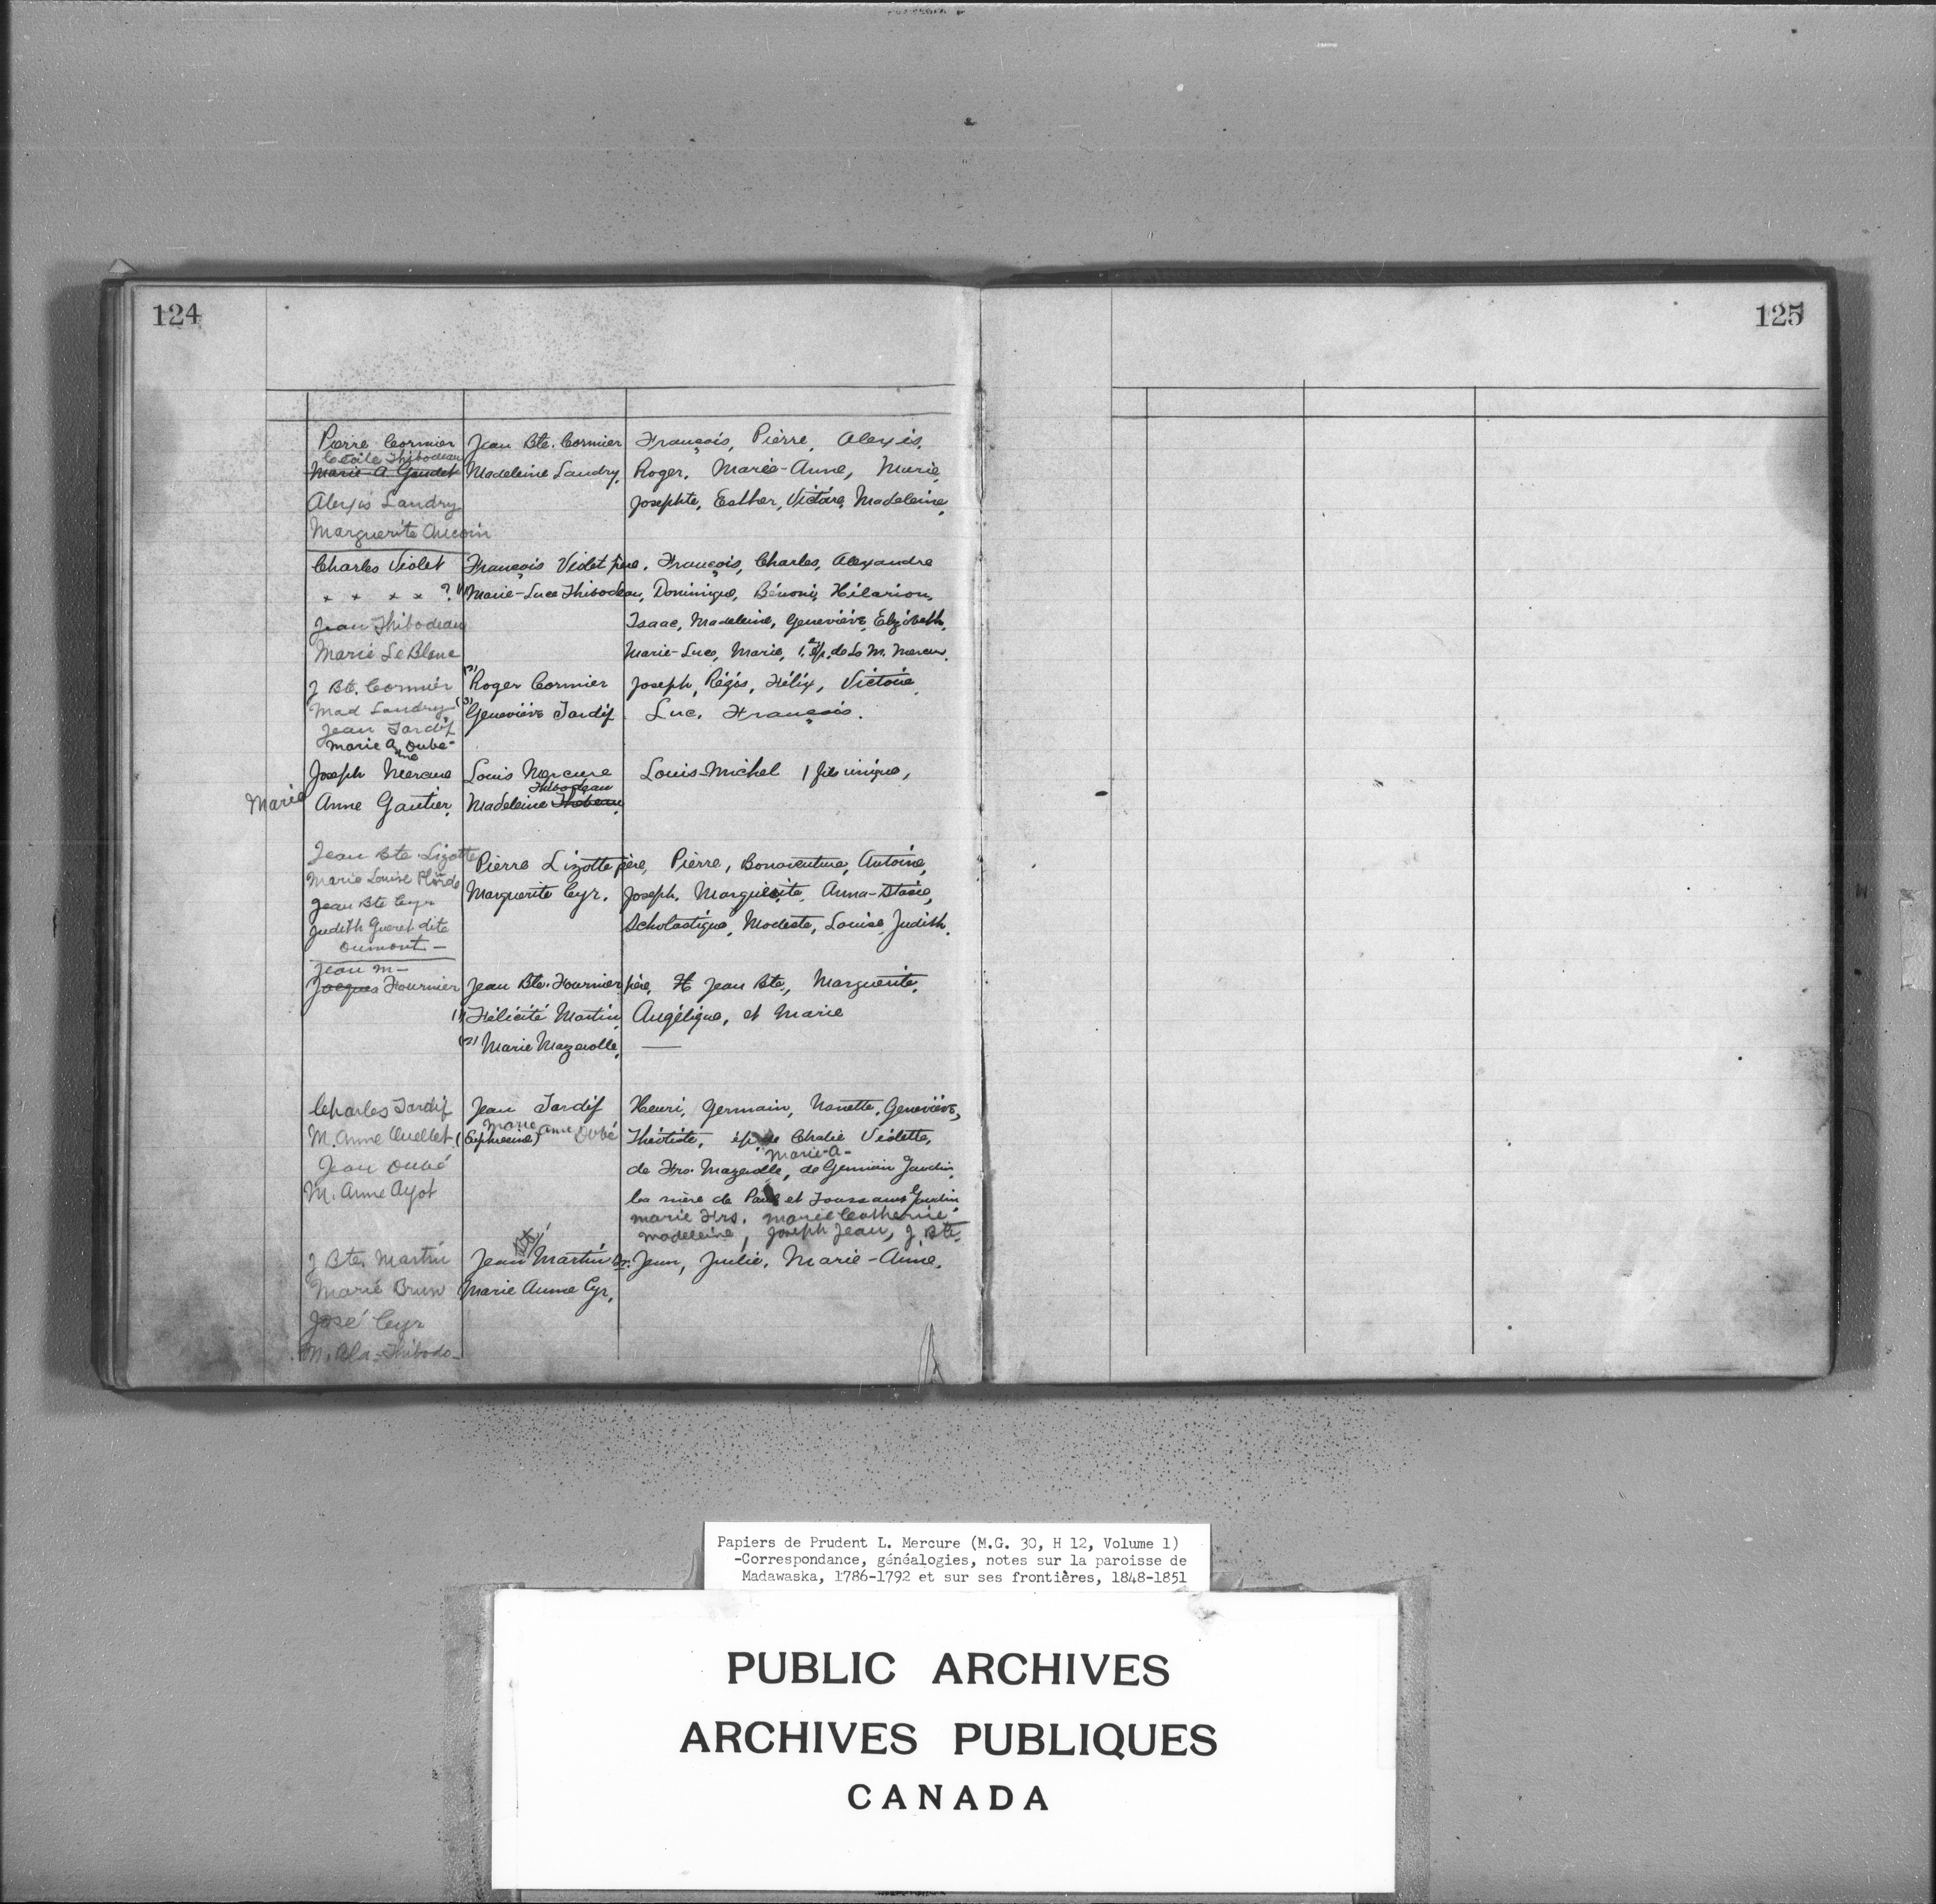 124
125
Pierre Cormier Jean Bte. Cormier François, Pierre, Alexis,
Cecile Thibodeau
Marie-A Gaudet Madeleine Landry, Roger, Marie-Anne, Marie,
Alexis Landry Josephte, Esther, Victoire, Madeleine,
Marguerite Aucoin
Charles Violet François Violet père, François, Charles, Alexandre
" " " " ? (1) Marie-Luce Thibodeau, Dominique, Bénonie, Hilarion,
Jean Thibodeau Isaac, Madeleine, Geneviève, Elizabeth,
Marie LeBlanc Marie-Luce, Marie, 1e ép. de Ls M. Mercure.
J Bte. Cormier (2) Roger Cormier Joseph, Régis, Félix, Victorie,
Mad Landry (3) Geneviève Tardif Luc, François.
Jean Tardif
Marie Anne Dubé-
Joseph Mercure Louis Mercure Louis-Michel 1 fils unique,
Thibodeau
Marie Anne Gautier, Madeleine Thebeau,
Jean Bte Lizotte Pierre Lizotte père, Pierre, Bonaventure, Antoine,
Marie Louise Plourde
Jean Bte Cyr Marguerite Cyr, Joseph, Marguerite, Anna-Stasie,
Judith Gueret dite Scholastique, Modeste, Louise, Judith.
Dumont -
Jean M-
Jacques Fournier Jean Bte. Fournier père, H Jean Bte., Marguerite,
(1) Félicité Martin, Angélique, et Marie
(2) Marie Mazerolle, —
Charles Tardif Jean Tardif Henri, Germain, Nanette, Geneviève,
Marie Anne Dubé
M. Anne Ouellet (Euphresine) Théotiste, ép de Chalie Violette,
Marie-A-
Jean Dubé de Frs. Mazerolle, de Germain Jandin,
M. Anne Ayot la mère de Paul et Toussaint Jandin
Marie Frs. Marie Catherine
Madeleine, Joseph Jean, J. Bte.
Bte
J Bte. Martin Jean Martin Sr. Jean, Julie, Marie-Anne,
Marie Brun Marie Anne Cyr,
José Cyr
M. Thibodo-
Papiers de Prudent L. Mercure (M.G. 30, H 12, Volume 1)
-Correspondance, généalogies, notes sur la paroisse de
Madawaska, 1786-1792 et sur ses frontières, 1848-1851
PUBLIC ARCHIVES
ARCHIVES PUBLIQUES
CANADA